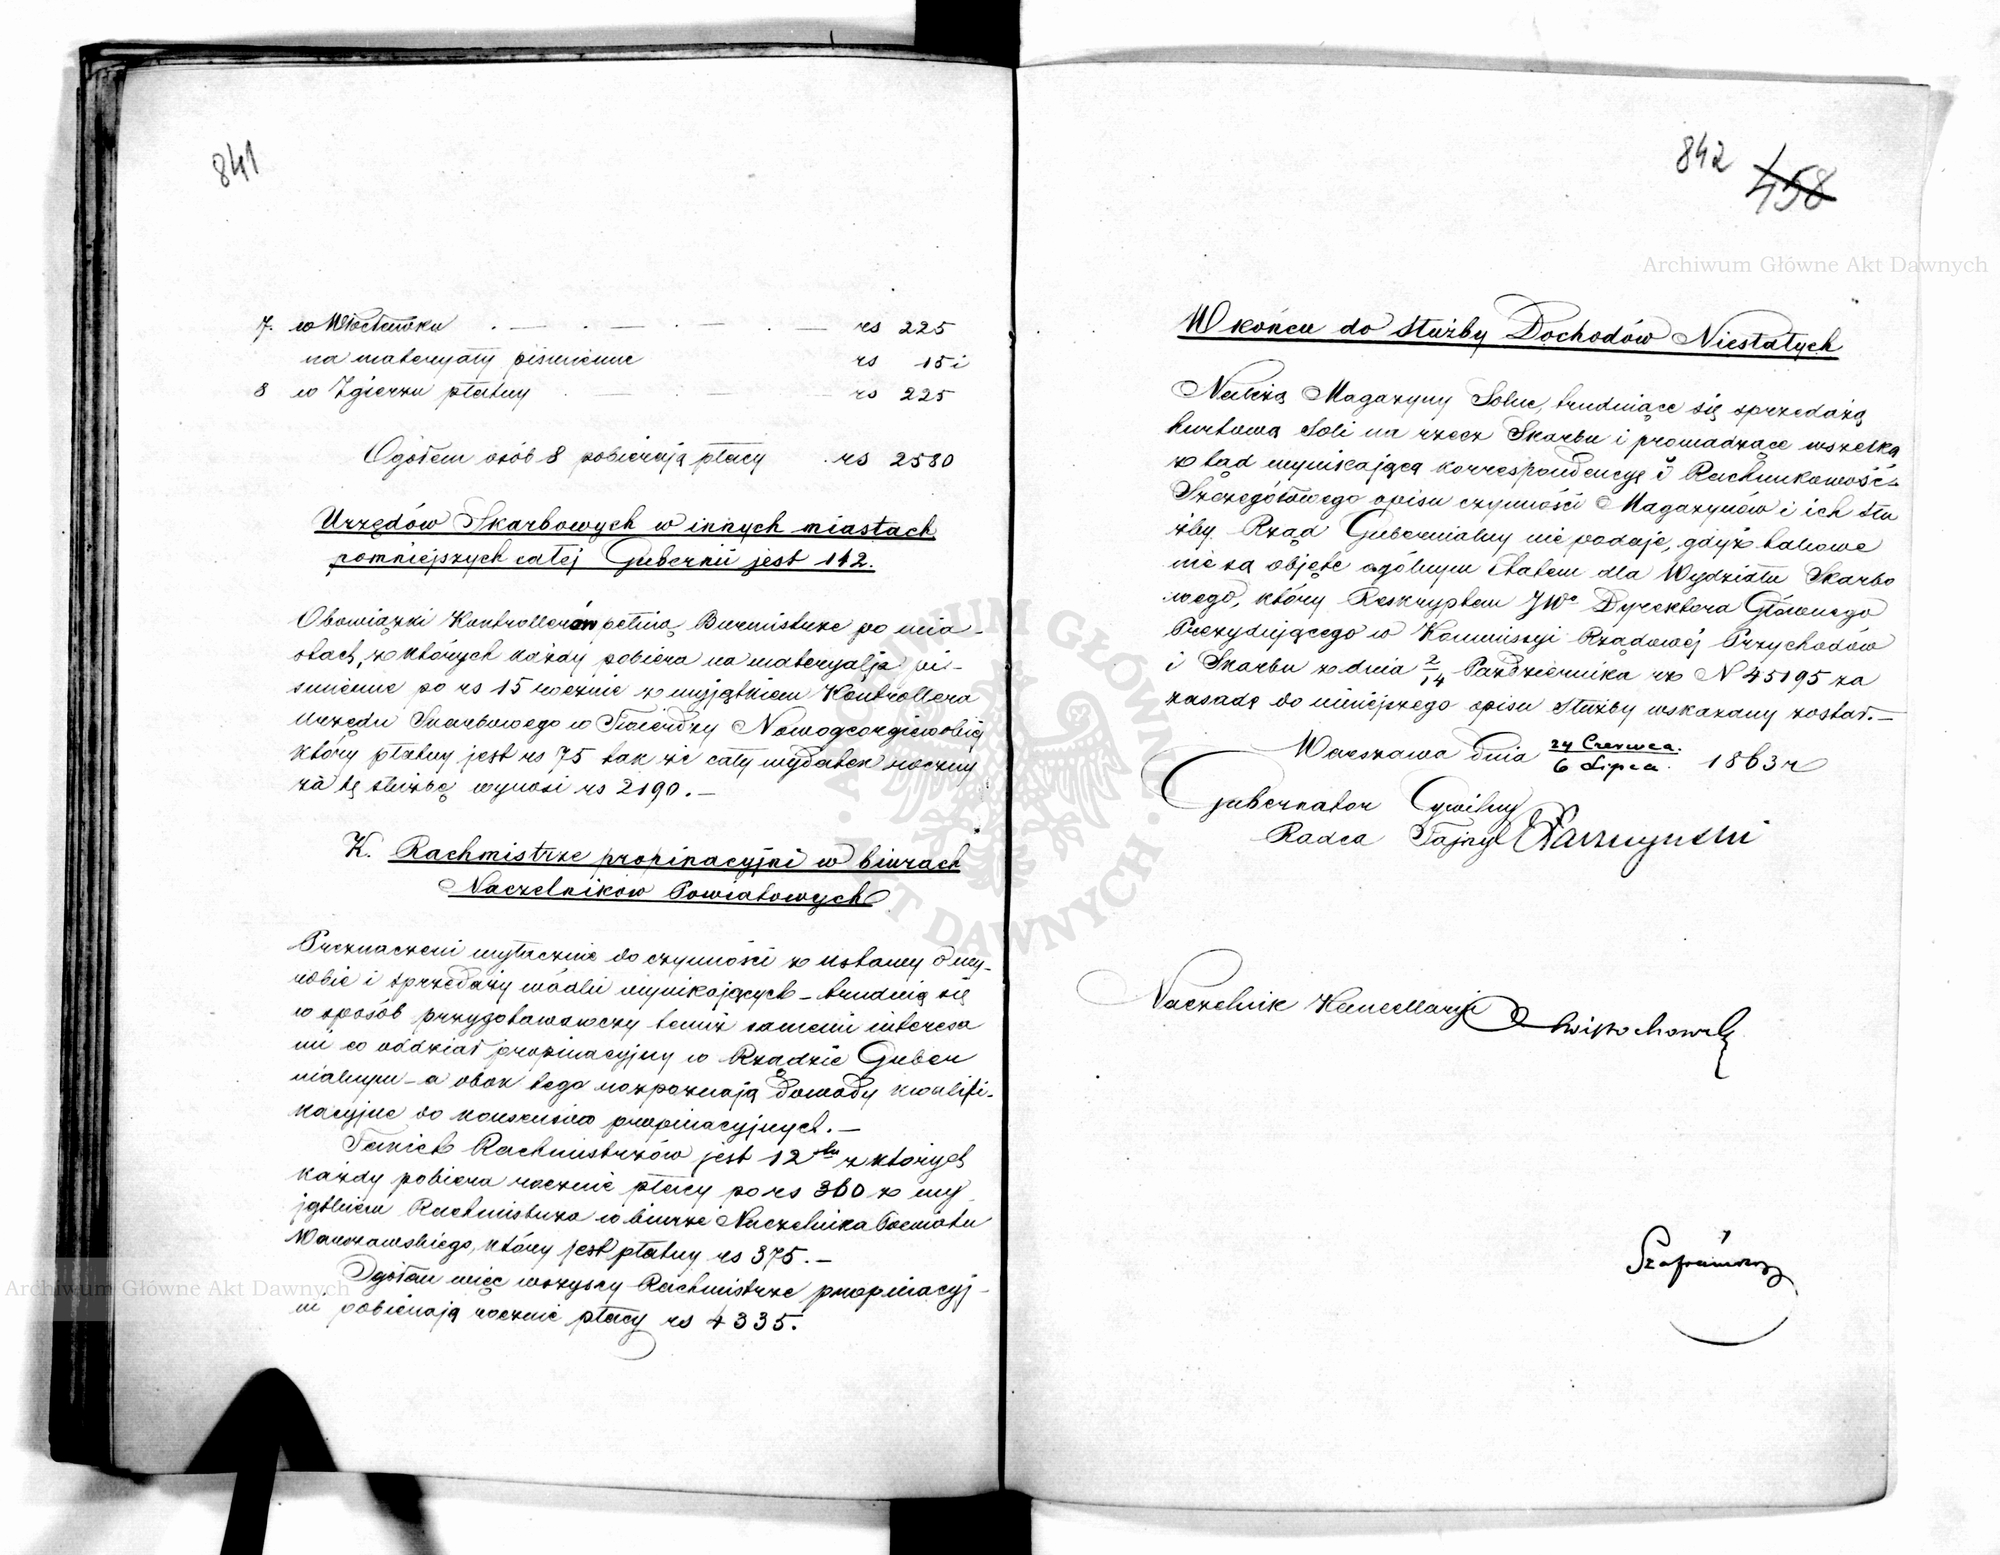 841
7. w Włocławku . — . — . — . — rs 225
na materyały piśmienne rs 15 i
8 w Zgierzu płatny . — . — rs 225
Ogółem osób 8 pobierają płacy . rs 2580
Urzędów Skarbowych w innych miastach
pomniejszych całej Gubernii jest 142.
Obowiązki Kontrollerów pełnią Burmistrze po mia-
stach, z których każdy pobiera na materyalja pi-
śmienne po rs 15 rocznie z wyjątkiem Kontrollera
Urzędu Skarbowego w Twierdzy Nowogeorgiewskiej
który płatny jest rs 75 tak że cały wydatek roczny
za tę służbę wynosi rs 2190. —
K. Rachmistrze propinacyjni w biurach
Naczelników Powiatowych
Przeznaczeni wyłącznie do czynności z ustawy o wy-
robie i sprzedaży wódki wynikających – trudnią się
w sposób przygotawawczy temiż samemi interesa
mi co oddział propinacyjny w Rządzie Guber
nialnym – a obok tego rozpoznają dowody kwalifi-
kacyjne do konsensów propinacyjnych. —
Takich Rachmistrzów jest 12tu z których
każdy pobiera rocznie płacy po rs 360 z wy
jątkiem Rachmistrza w biurze Naczelnika Powiatu
Warszawskiego, który jest płatny rs 375. —
Ogółem więc wszyscy Rachmistrze propinacyj-
ni pobierają rocznie płacy rs 4335.
842 458
W końcu do służby Dochodów Niestałych
Należą Magazyny Solne, trudniące się sprzedażą
hurtową Soli na rzecz Skarbu i prowadzące wszelką
z tąd wynikającą korrespondencyę i Rachunkowość –
Szczegółowego opisu czynności Magazynów i ich słu
żby Rząd Gubernialny nie podaje, gdyż takowe
nie są objęte ogólnym etatem dla Wydziału Skarbo
wego, który Reskryptem JWo Dyrektora Głównego
Prezydującego w Kommissyi Rządowéj Przychodów
i Skarbu z dnia 2/14 Października rz N 45195 za
zasadę do niniejszego opisu służby wskazany został. —
Warszawa dnia 24 Czerwca / 6 Lipca 1863 r
Gubernator Cywilny
Radca Tajny
Naczelnik Kancellaryi
Archiwum Główne Akt Dawnych
Archiwum Główne Akt Dawnych
ARCHIWUM GŁÓWNE AKT DAWNYCH